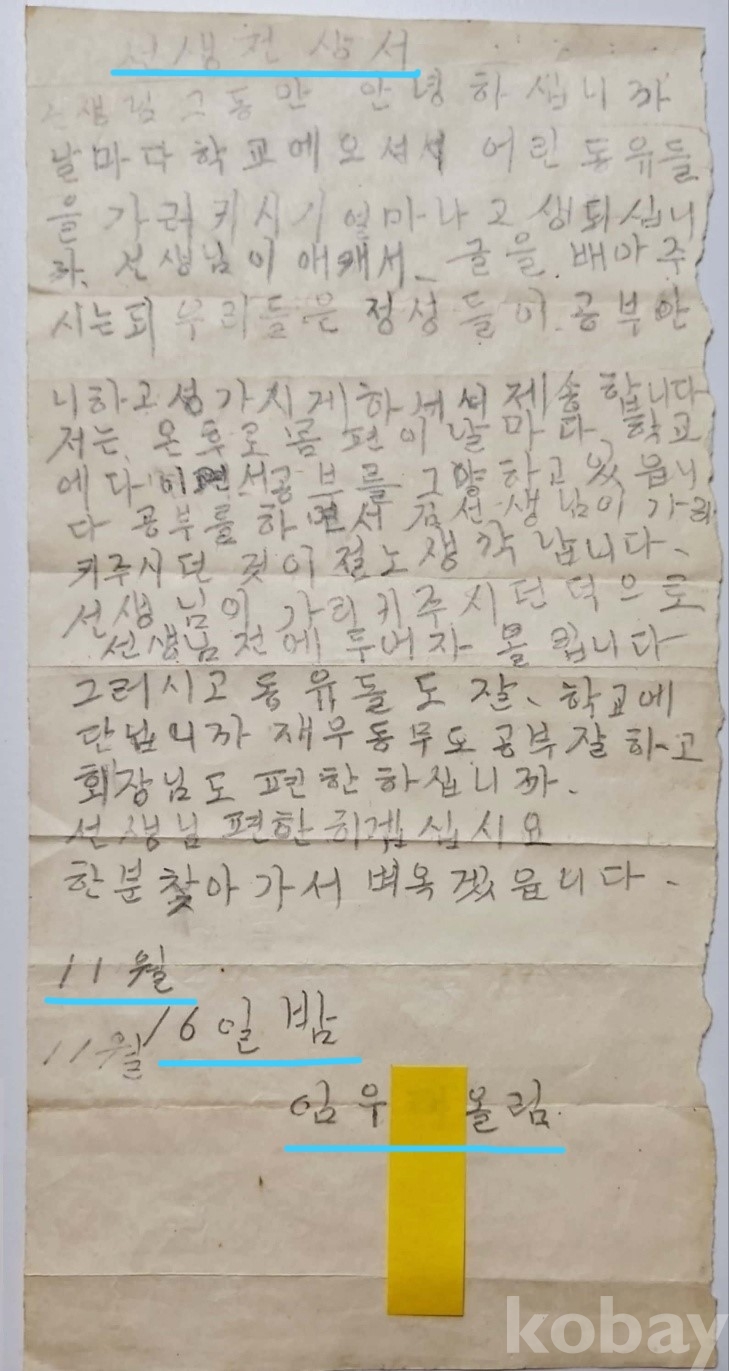 선생전상서
선생님 그동안 안녕하십니까
날마다 학교에오셔서 어린동유들
을 가러키시기얼마나고생되십니
까. 선생님이애캐서 글을 배아주
시는되우리들은정성들이공부안
니하고성가시게하셔서제송합니다
저는 온후로몸편이날마다학교
에다이면서공부를그양하고있읍니
다 공부를하면서김선생님이가리
키주시던것이절노생각납니다.
선생님이가리키주시던덕으로
선생님전에두어자몰립니다
그러시고동유들도잘、학교에
단닙니까재우동무도공부잘하고
회장님도편한하십니까.
선생님편한히겝십시요
한분찾아가서뵈옥겠읍니다.
11월
16일밤
11월
임우 올림.
kobay